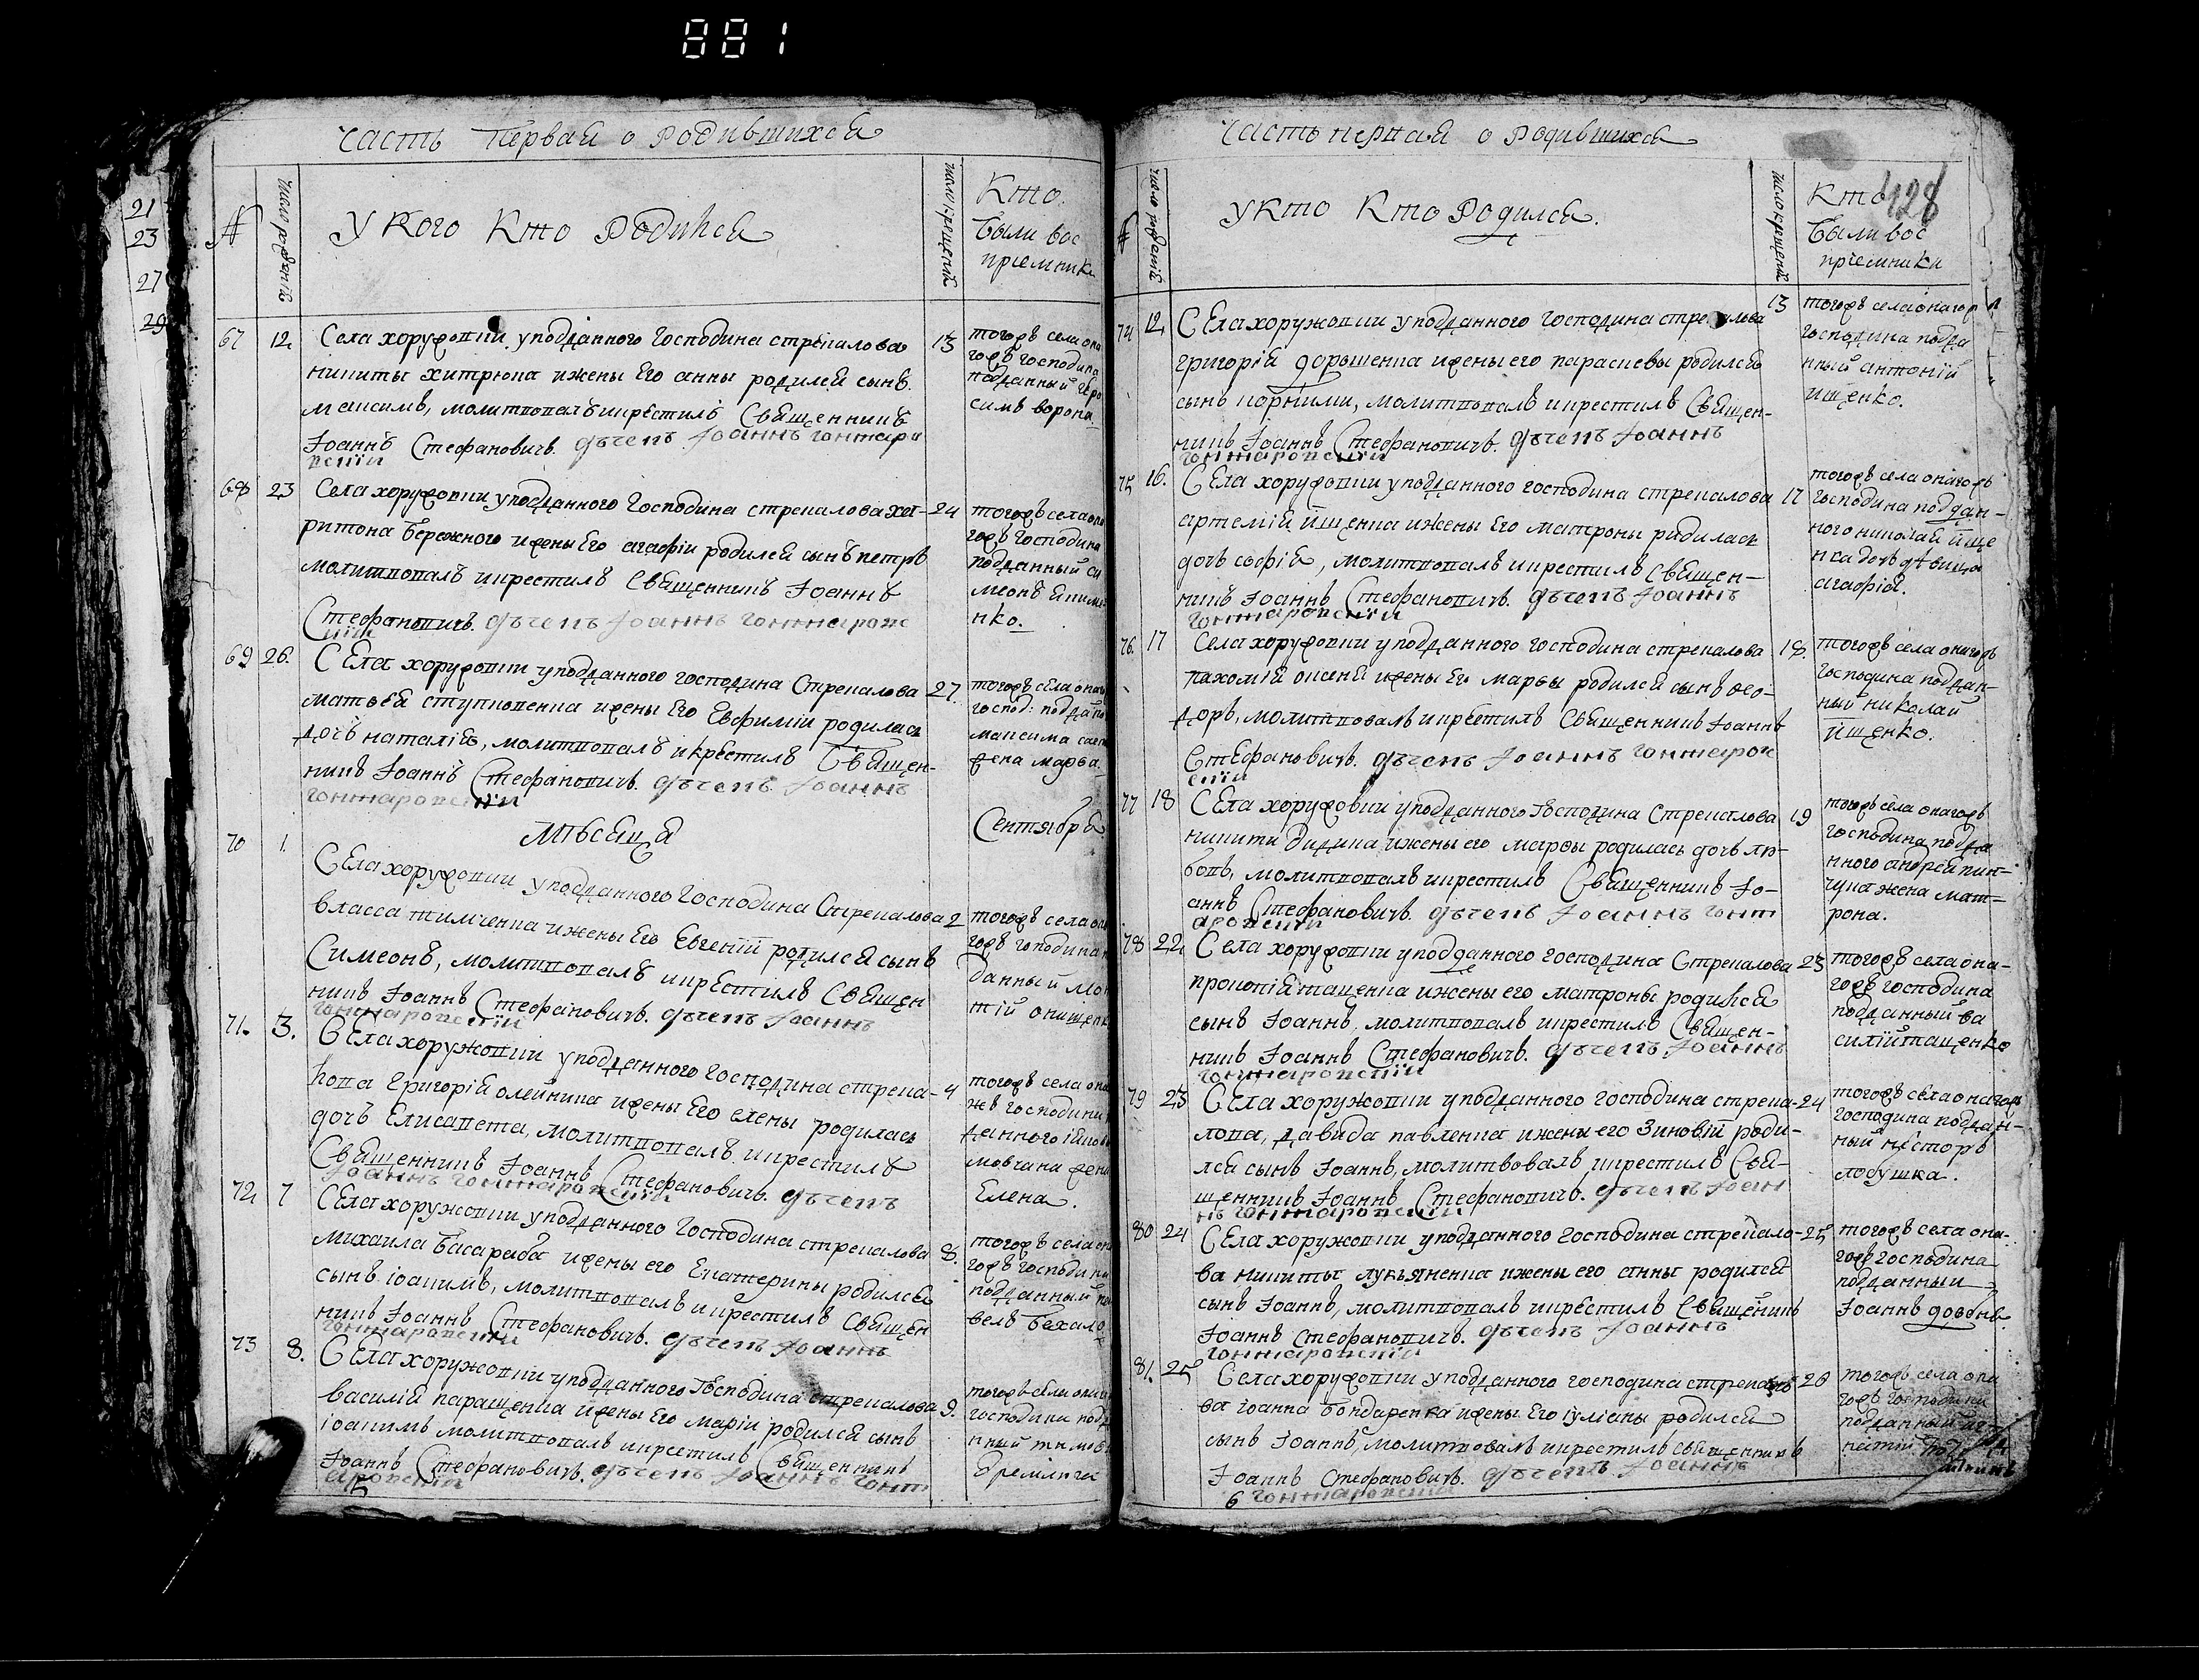 881
21
23
27
29
часть первая о родившихся
№
число рождений
у кого кто родился
число крещений
кто
были вос
приемники
67
12
Села хоружовки у подданного Господина стрекалова
никиты хитрюка и жены Его анны родился сынъ
максимъ, молитвовалъ и крестилъ Священникъ
Іоаннъ Стефановичъ. дьячекъ Іоаннъ гонтаро
вскїи
13
тогожъ села она
гожъ господина
подданный гера
симъ ворона
68
23
Села хоружовки у подданного Господина стрекалова ха-
ритона бережного и жены Его агафїи родился сынъ петръ
молитвовалъ и крестилъ Священникъ Іоаннъ
Стефановичъ. дьячекъ Іоаннъ гонтаровс
кїи
24
тогожъ села она
гожъ Господина
подданный си
меонъ
нко.
69
26.
СЕла хоружовки у подданного господина Стрекалова
матвея ступненка и жены Его Евфимїи родилась
дочь наталія, молитвовалъ и крестилъ Священ-
никъ Іоаннъ Стефановичъ. дьячекъ Іоаннъ
гонтаровскїи
27.
тогожъ села она
господ: подда
максима
жена марфа.
Мѣсяца
Сентября
70
1.
СЕла хоружовки у подданного Господина Стрекалова
власса тимченка и жены Его Евгенїи родился сынъ
Симеонъ, молитвовалъ и крЕстилъ Священ
никъ Іоаннъ Стефановичъ. дьячекъ Іоаннъ
гонтаровскїи
2
тогожъ села она
гожъ господина
данный
тїй онищенк
71.
3.
СЕла хоружовки у подданного Господина стрека-
лова Григорія олейника и жены Его елены родилась
дочь Елисавета, молитвовалъ и крестилъ
Священникъ Іоаннъ Стефановичъ. дьячекъ
Іоаннъ гонтаровскїи
4
тогожъ села она
жъ господина
данного
мовчана жена
Елена.
72
7
СЕла хоружовки у подданного Господина стрекалова
михаила басараба и жены его Екатерины родился
сынъ іоакимъ, молитвовалъ и крестилъ Священ
никъ Іоаннъ Стефановичъ. дьячекъ Іоаннъ
гонтаровскїи
8.
тогожъ села она
гожъ господина
подданный па
велъ бехало
73
8.
СЕла хоружовки у подданного Господина стрекалова
василїя паращенка и жены Его Марїи родился сынъ
іоакимъ молитвовалъ и крестилъ Священникъ
Іоаннъ Стефановичъ. дьячекъ Іоаннъ гонт
аровскїи
9.
тогожъ села она
господина подда
нный тимофе
5
часть первая о родившихся
число рождений
у кто кто родился.
число крещений
кто
были вос
приемники
428
74
12
СЕла хоружовки у подданного господина стрекалова
григорїя дорошенка и жены его парасковы родился
сынъ корнилий, молитвовалъ и крестилъ Священ-
никъ Іоаннъ Стефановичъ. дьячекъ Іоаннъ
гонтаровскїи
13
тогожъ села онагожъ
господина подда
нный антонїй
ищенко.
75
16.
СЕла хоружовки у подданного господина стрекалова
артемїя ищенка и жены Его матроны родилась
дочь софїя, молитвовалъ и крестилъ Священ-
никъ Іоаннъ Стефановичъ. дьячекъ Іоаннъ
гонтаровскїи
17
тогожъ села онагожъ
господина поддан-
ного николая ище
нка дочь дѣвица
агафїя.
76.
17
Села хоружовки у подданного господина стрекалова
пахомїя и жены Его марфы родился сынъ фео-
доръ, молитвовалъ и крЕстилъ Священникъ Іоаннъ
Стефановичъ. дьячекъ Іоаннъ гонтаров
скїи
18.
тогожъ села онагожъ
господина поддан-
ный николай
їщенко.
77
18
СЕла хоружовки у подданного Господина Стрекалова
никити дидика и жены его марфы родилась дочь лю-
бовъ, молитвовалъ и крестилъ Священникъ Іо-
аннъ Стефановичъ. дьячекъ Іоаннъ гонт
аровскїи
19
тогожъ села онагожъ
господина подда
нного андрея пин-
чука жена мат-
рона.
78
22
Села хоружовки у подданного господина Стрекалова
прокопїя ташенка и жены его матроны родился
сынъ Іоаннъ, молитвовалъ и крестилъ Священ-
никъ Іоаннъ Стефановичъ. дьячекъ Іоаннъ
гонтаровскїи
23
тогожъ села она-
гожъ господина
подданный ва
силїй ташенко
79
23
СЕла хоружовки у подданного господина стрека-
лова, давида павленка и жены его Зиновїи роди-
лся сынъ Іоаннъ, молитвовалъ и крестилъ Свя-
щенникъ Іоаннъ Стефановичъ. дьячекъ Іоан
нъ гонтаровскїи
24
тогожъ села онагожъ
господина поддан-
ный нѣсторъ
лобушка.
80
24
СЕла хоружовки у подданного господина стрекало-
ва никиты лукьяненка и жены его анны родился
сынъ Іоаннъ, молитвовалъ и крЕстилъ Священникъ
Іоаннъ Стефановичъ. дьячекъ Іоаннъ
гонтаровскїи
25
тогожъ села она-
гожъ господина
подданный
Іоаннъ довбня.
81.
25
Села хоружовки у подданного господина стрекало
ва іоанна бондаренка и жены Его іулїаны родился
сынъ Іоаннъ, молитвовалъ и крестилъ священникъ
Іоаннъ Стефановичъ. дьячекъ Іоаннъ
гонтаровскїи
26
тогожъ села она
гожъ господина
подданный
6